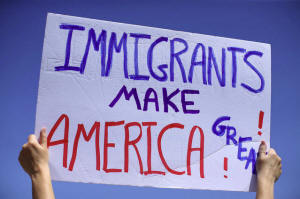 IMMIGRANTS
MAKE
AMERICA GREAT!
!